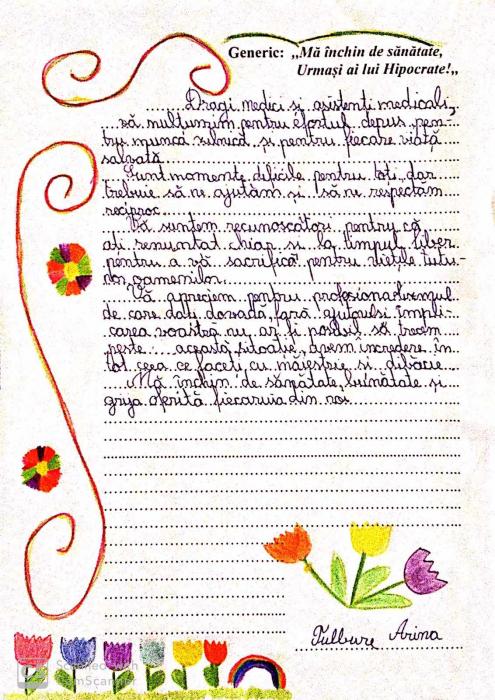 Generic: „Mă închin de sănătate,
Urmași ai lui Hipocrate!„
Dragi medici și asistenți medicali,
vă mulțumim pentru efortul depus pen-
tru munca zilnică și pentru fiecare viață
salvată.
Sunt momente dificile pentru toți, dar
trebuie să ne ajutăm și să ne respectăm
reciproc.
Vă suntem recunoscători pentru că
ați renunțat chiar și la timpul liber
pentru a vă sacrifica pentru viețile tutu-
ror oamenilor.
Vă apreciem pentru profesionalismul
de care dați dovadă, fără ajutorul și impli-
carea voastră nu ar fi posibil să trecem
peste această situație, avem încredere în
tot ceea ce faceți cu măiestrie și dibăcie.
Mă închin de sănătate, bunătate și
grija oferită fiecăruia din noi.
Tulbure Arina
CamScanner